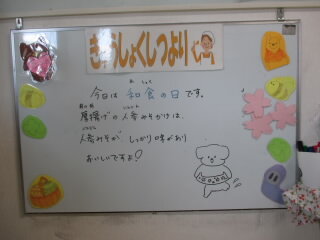 きゅうしょくしつより
今日は 和食の日です。
厚揚げの人参みそがけは、
人参みそが、しっかり味があり
おいしいですよ♡